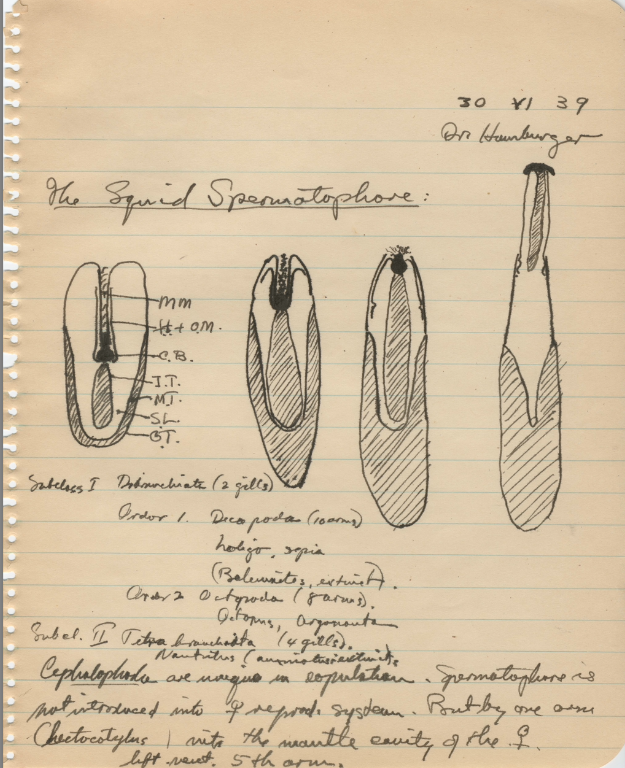 30 VI 39
Dr. Hamburger
The Squid Spermatophore:
MM
H + O.M.
C.B.
I.T.
M.T.
SL
O.T.
Subclass I Dibranchiata (2 gills)
Order 1. Decapoda (10 arms)
Loligo, sepia
(Belemnites, extinct).
Order 2 Octopoda (8 arms).
Octopus, Argonauta
Subcl. II Tetrabranchiata (4 gills).
Nautilus (
Cephalophoda are unique in copulation. Spermatophore is
not introduced into ♀ reprod. system. But by one arm
(hectocotylus) into the mantle cavity of the ♀.
left vent. 5th arm.